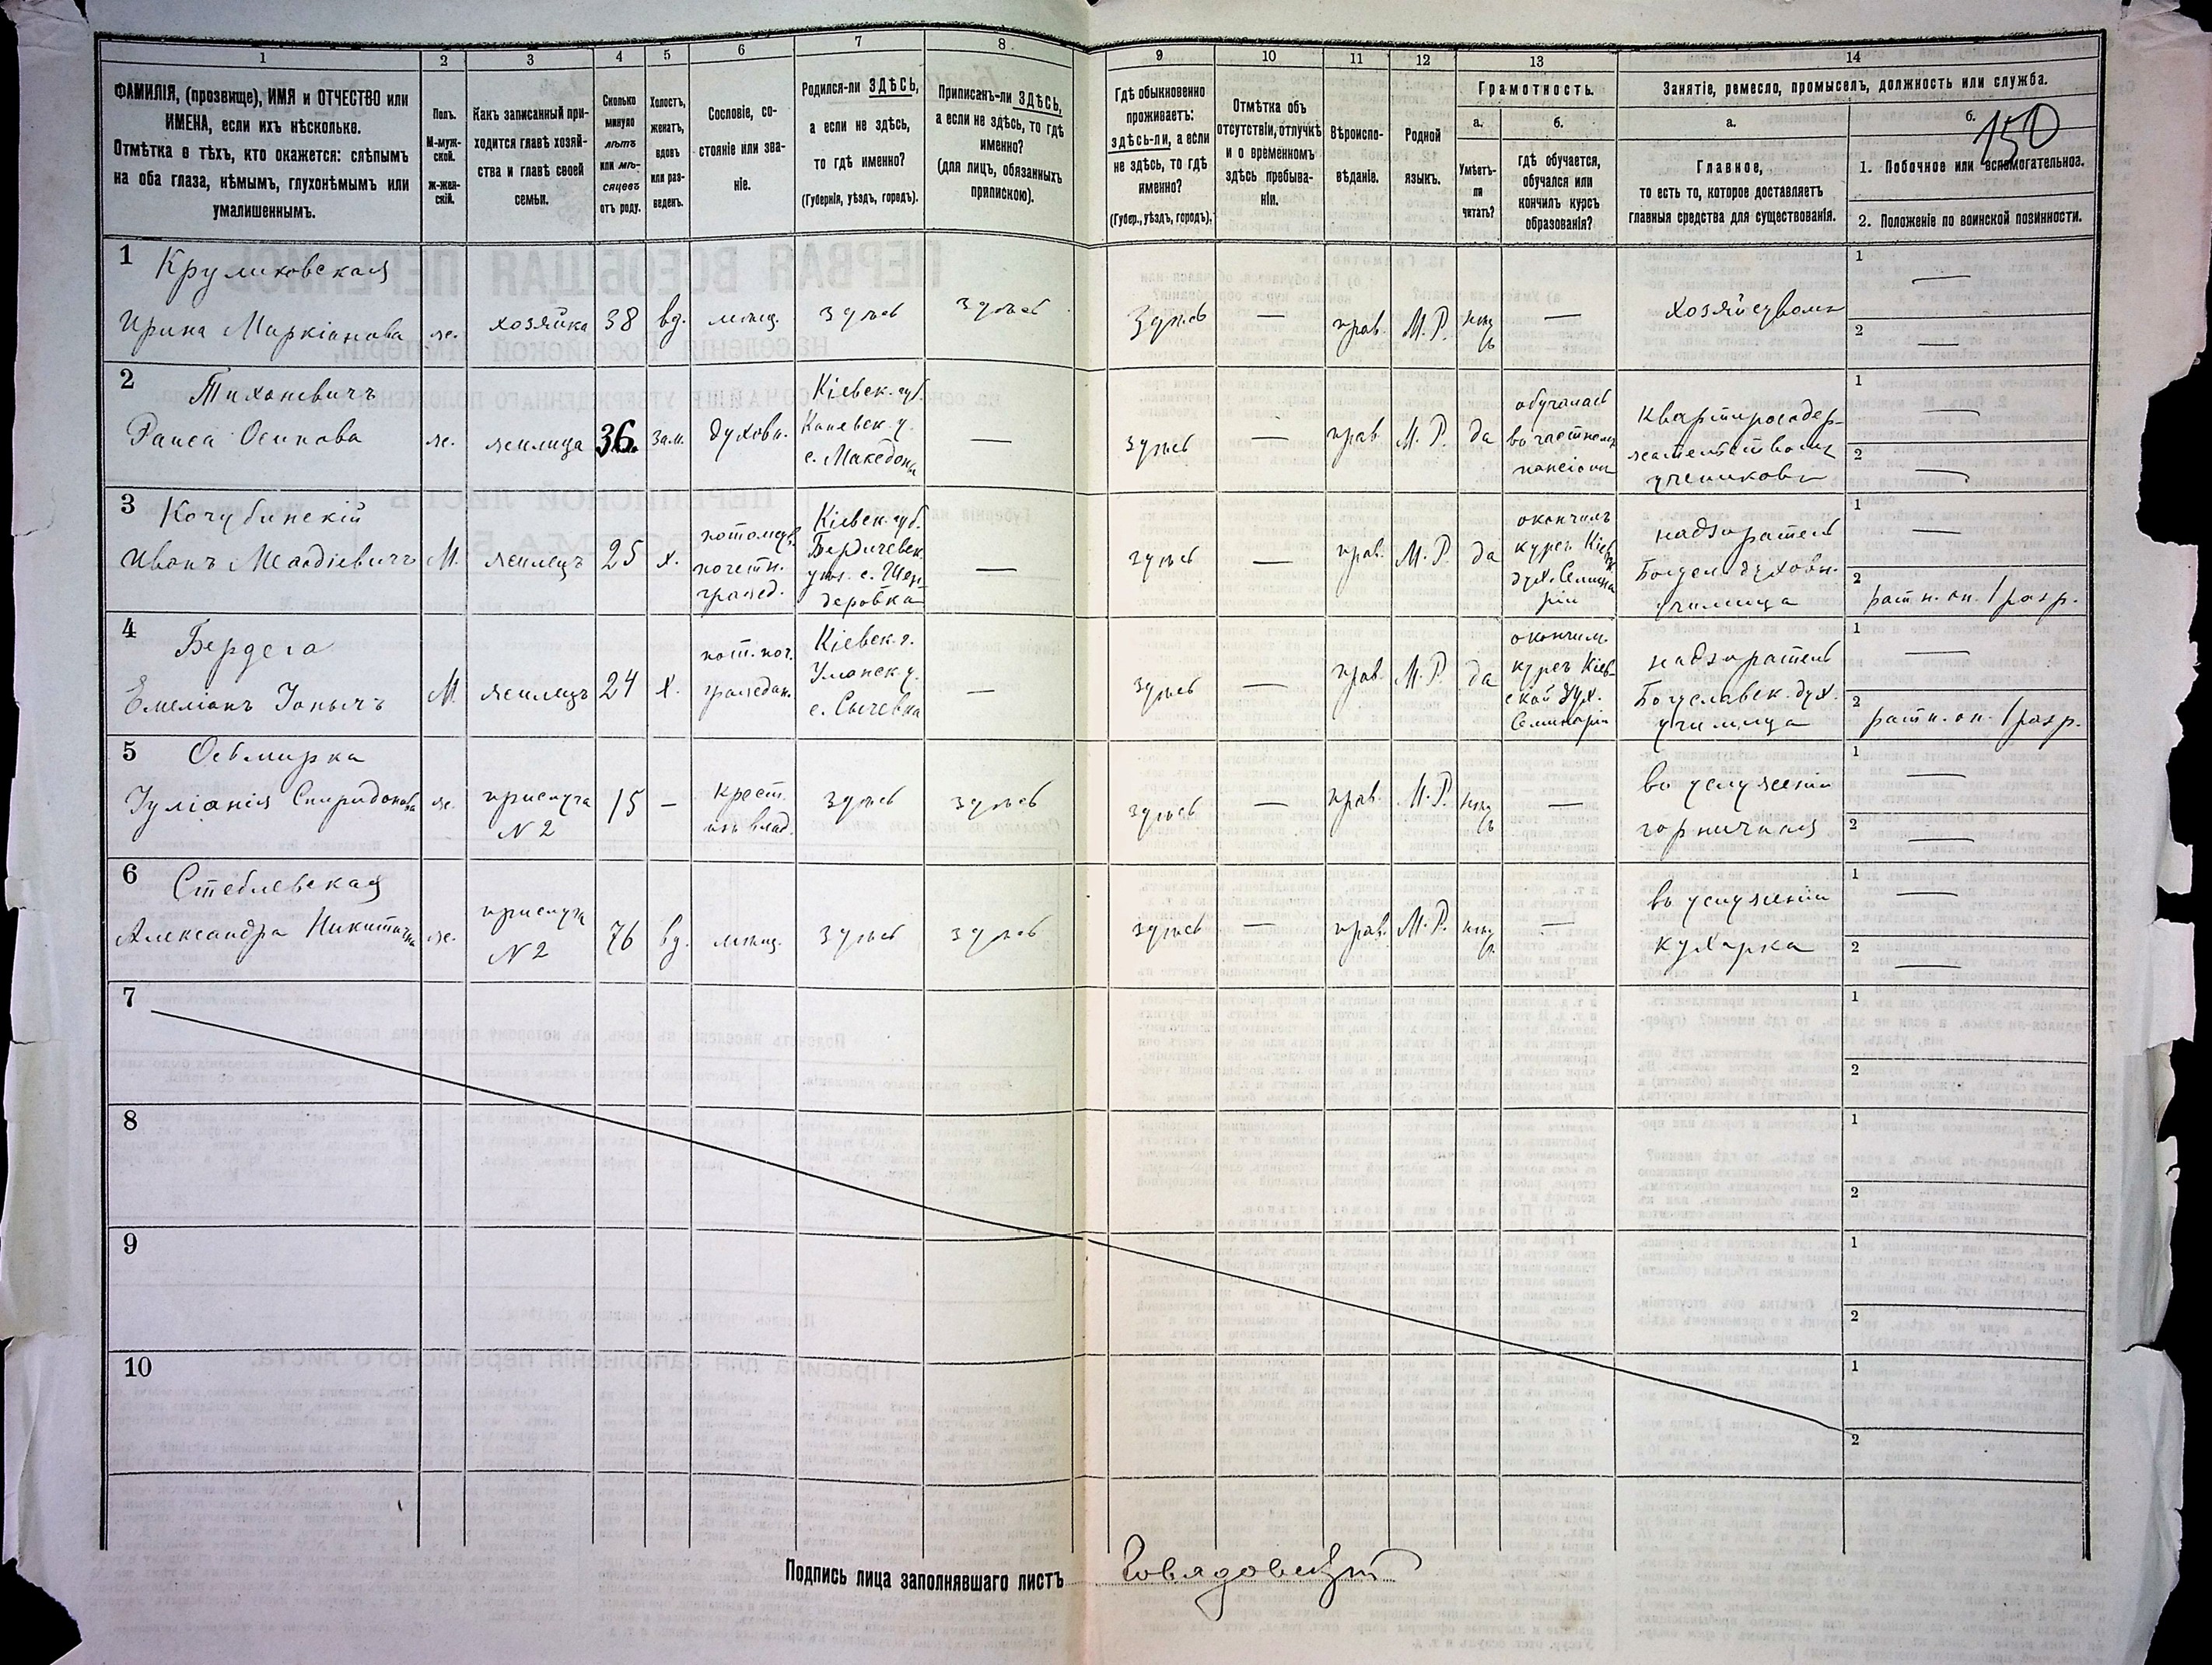 1 2 3 4 5 6 7 8 9 10 11 12 13 14
ФАМИЛІЯ, (прозвище), ИМЯ и ОТЧЕСТВО или
ИМЕНА, если ихъ нѣсколько.
Отмѣтка о тѣхъ, кто окажется: слѣпымъ
на оба глаза, нѣмымъ, глухонѣмымъ или
умалишеннымъ.
Полъ.
М-муж-
ской.
ж-жен-
скій.
Какъ записанный при-
ходится главѣ хозяй-
ства и главѣ своей
семьи.
Сколько
минуло
лѣтъ
или мѣ-
сяцевъ
отъ роду.
Холостъ,
женатъ,
вдовъ
или раз-
веденъ.
Сословіе, со-
стояніе или зва-
ніе.
Родился-ли ЗДѢСЬ,
а если не здѣсь,
то гдѣ именно?
(Губернія, уѣздъ, городъ).
Приписанъ-ли ЗДѢСЬ,
а если не здѣсь, то гдѣ
именно?
(для лицъ, обязанныхъ
припискою).
Гдѣ обыкновенно
проживаетъ:
здѣсь-ли, а если
не здѣсь, то гдѣ
именно?
(Губер., уѣздъ, городъ).
Отмѣтка объ
отсутствіи, отлучкѣ
и о временномъ
здѣсь пребыва-
ніи.
Вѣроиспо-
вѣданіе.
Родной
языкъ.
Грамотность.
а.
Умѣетъ-
ли
читать?
б.
гдѣ обучается,
обучался или
кончилъ курсъ
образованія?
Занятіе, ремесло, промыселъ, должность или служба.
а.
Главное,
то есть то, которое доставляетъ
главныя средства для существованія.
б.
150
1. Побочное или вспомогательное.
2. Положеніе по воинской повинности.
1 Круликовская
Ирина Маркіанова
ж.
хозяйка
38
вд.
мѣщ.
здѣсь
здѣсь
здѣсь
—
прав.
М. Р.
нѣтъ
—
1 —
2 —
2 Тихоневичъ
Раиса Осипова
ж.
жилица
36
зам.
духовн.
Кіевск. губ.
Каневск. у.
с. Македоны
—
здѣсь
—
прав.
М. Р.
да
обучалась
въ частномъ
пансіонѣ
квартиросодер-
жательствомъ
учениковъ
1 —
2 —
3 Кочубинскій
Иванъ
М.
жилецъ
25
х.
потомств.
почетн.
гражд.
Кіевск. губ.
Бердичевск.
с. Шен-
деровка
—
здѣсь
—
прав.
М. Р.
да
окончилъ
курсъ Кіев.
дух. Семина-
ріи
надзиратель
Богусл. духовн.
училища
1 —
2 ратн. оп. 1 разр.
4 Бердега
Емеліанъ
М.
жилецъ
24
х.
пот. поч.
граждан.
Кіевск. г.
Уманск. у.
с. Сычевка
—
здѣсь
—
прав.
М. Р.
да
окончилъ
курсъ Кіев-
ской дух.
Семинаріи
надзиратель
Богуславск. дух.
училища
1 —
2 ратн. оп. 1 разр.
5
Іуліанія Спиридонова
ж.
прислуга
N 2
15
—
крест.
изъ влад.
здѣсь
здѣсь
здѣсь
—
прав.
М. Р.
нѣтъ
—
въ услуженіи
горничная
1 —
2 —
6 Стеблевская
Александра Никитична
ж.
прислуга
N 2
76
вд.
мѣщ.
здѣсь
здѣсь
здѣсь
—
прав.
М. Р.
нѣтъ
—
въ услуженіи
кухарка
1 —
2 —
7
1
2
8
1
2
9
1
2
10
1
2
Подпись лица заполнявшаго листъ